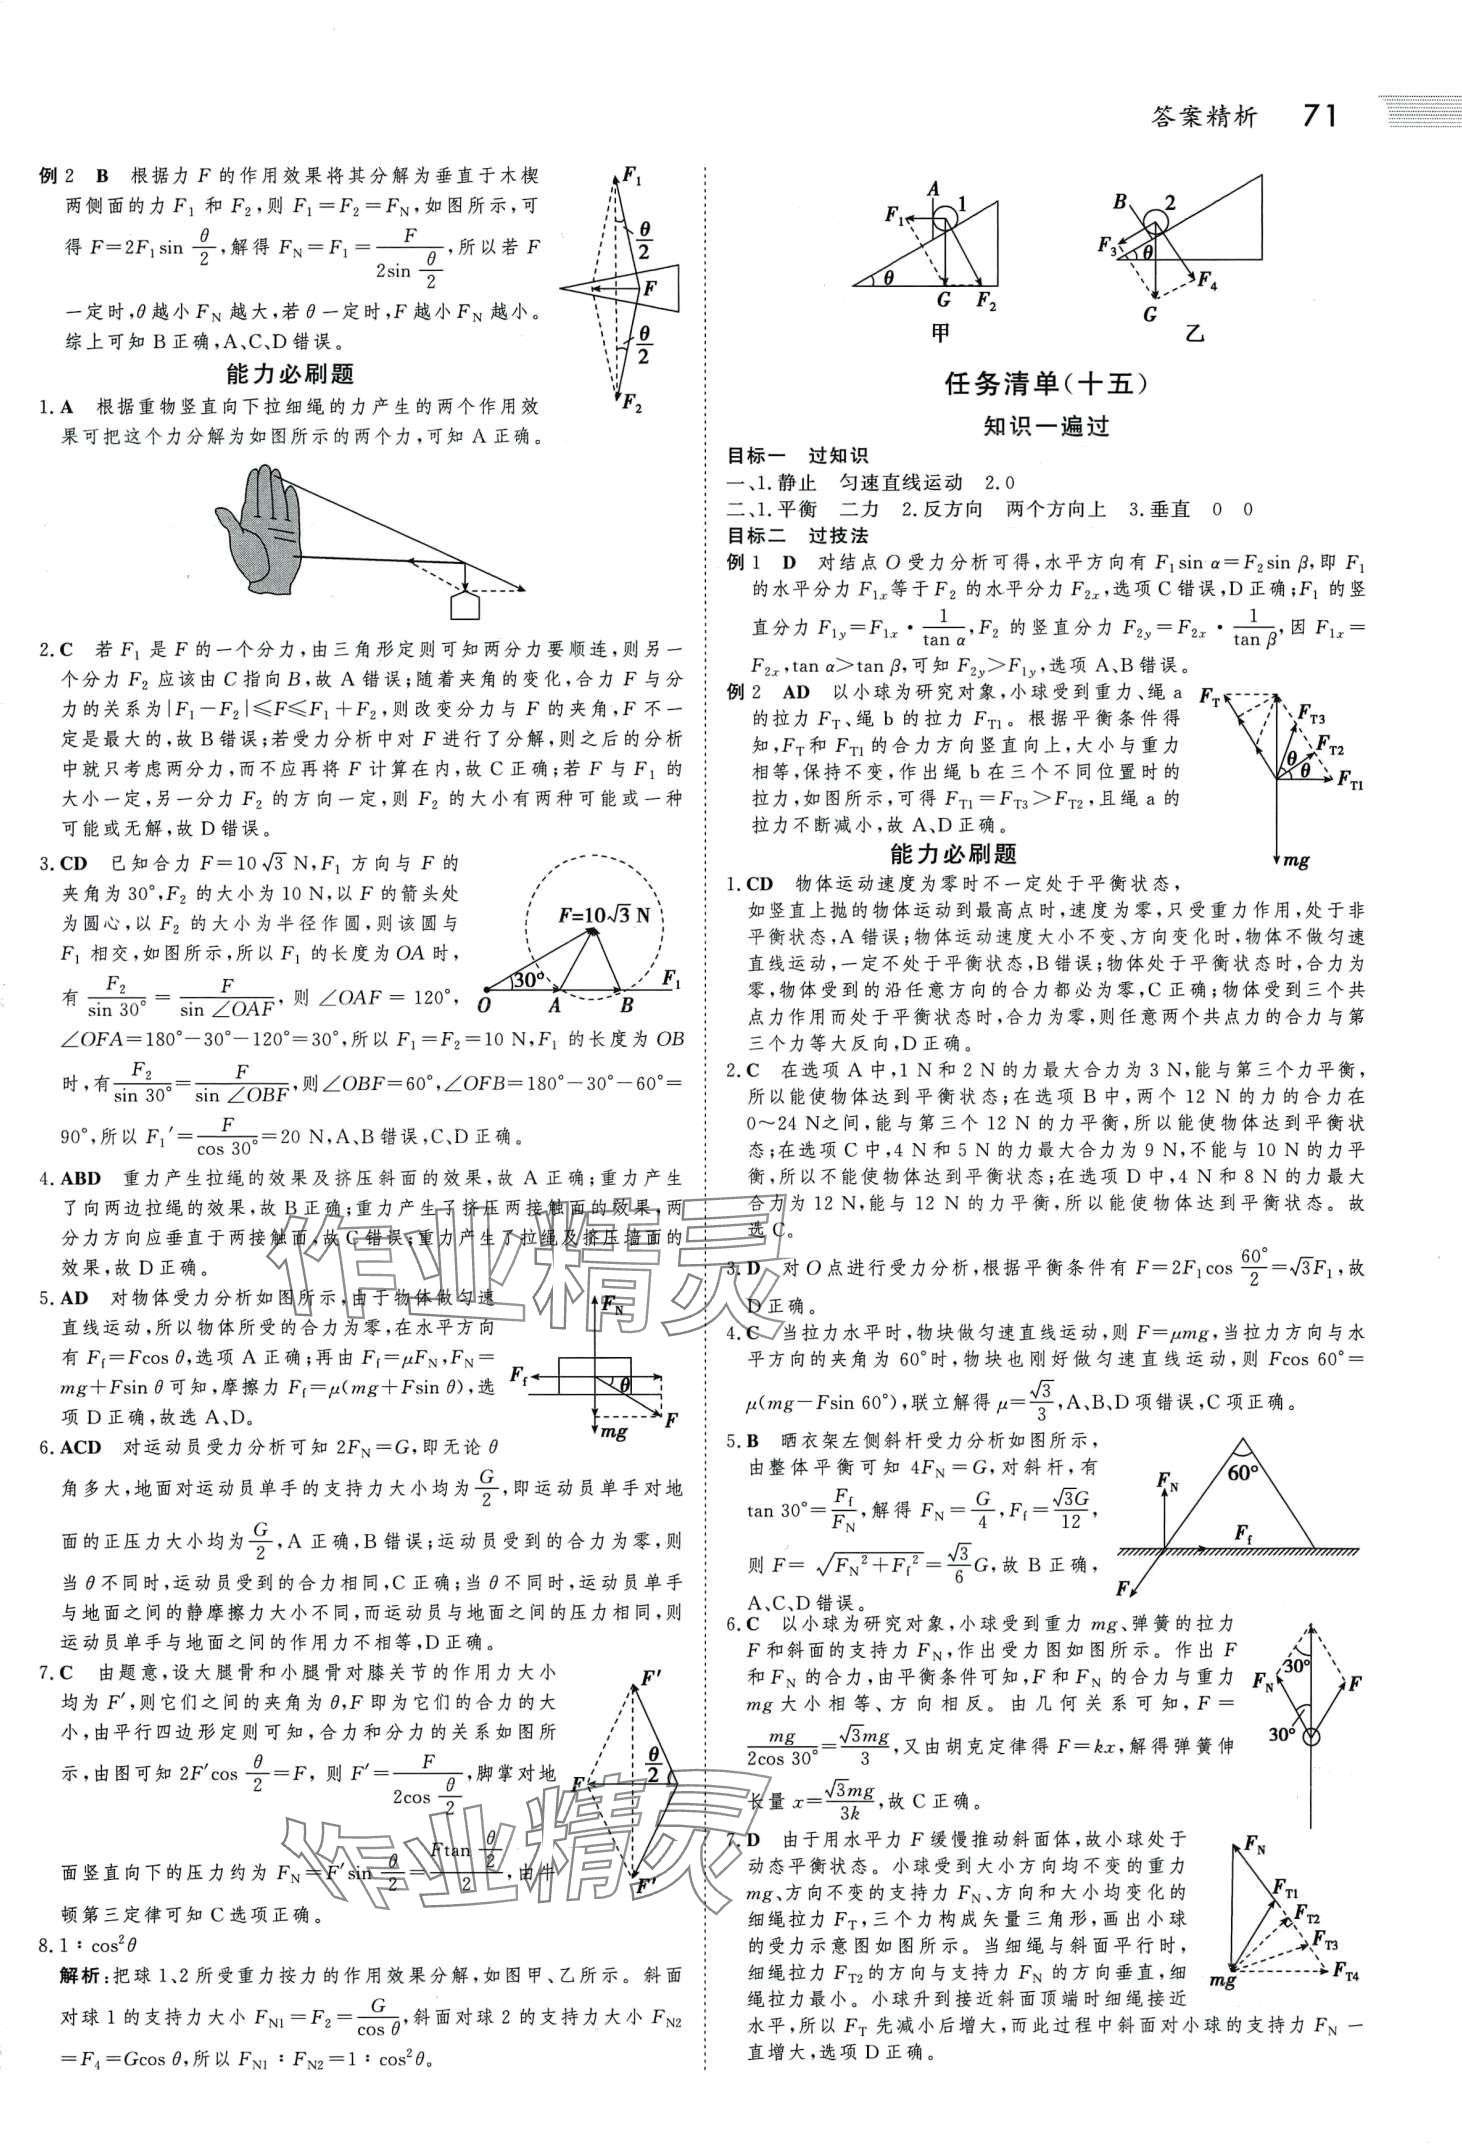 答案精析 71
例2 B 根据力 F 的作用效果将其分解为垂直于木楔
两侧面的力 F₁ 和 F₂,则 F₁=F₂=F_N,如图所示,可
得 F=2F₁sin θ/2,解得 F_N=F₁=F/(2sin θ/2),所以若 F
一定时,θ越小 F_N 越大,若 θ 一定时,F 越小 F_N 越小。
综上可知 B 正确,A、C、D 错误。
F₁
θ/2
F
θ/2
F₂
能力必刷题
1. A 根据重物竖直向下拉细绳的力产生的两个作用效
果可把这个力分解为如图所示的两个力,可知 A 正确。
2. C 若 F₁ 是 F 的一个分力,由三角形定则可知两分力要顺连,则另一
个分力 F₂ 应该由 C 指向 B,故 A 错误;随着夹角的变化,合力 F 与分
力的关系为|F₁-F₂|≤F≤F₁+F₂,则改变分力与 F 的夹角,F 不一
定是最大的,故 B 错误;若受力分析中对 F 进行了分解,则之后的分析
中就只考虑两分力,而不应再将 F 计算在内,故 C 正确;若 F 与 F₁ 的
大小一定,另一分力 F₂ 的方向一定,则 F₂ 的大小有两种可能或一种
可能或无解,故 D 错误。
3. CD 已知合力 F=10√3 N,F₁ 方向与 F 的
夹角为30°,F₂ 的大小为10 N,以 F 的箭头处
为圆心,以 F₂ 的大小为半径作圆,则该圆与
F₁ 相交,如图所示,所以 F₁ 的长度为 OA 时,
有 F₂/sin 30° = F/sin ∠OAF, 则 ∠OAF = 120°,
∠OFA=180°-30°-120°=30°,所以 F₁=F₂=10 N,F₁ 的长度为 OB
时,有 F₂/sin 30°=F/sin ∠OBF,则∠OBF=60°,∠OFB=180°-30°-60°=
90°,所以 F₁′=F/cos 30°=20 N,A、B错误,C、D正确。
F=10√3 N
30°
O A B F₁
4. ABD 重力产生拉绳的效果及挤压斜面的效果,故 A 正确;重力产生
了向两边拉绳的效果,故 B 正确;重力产生了挤压两接触面的效果,两
分力方向应垂直于两接触面,故 C 错误;重力产生了拉绳及挤压墙面的
效果,故 D 正确。
5. AD 对物体受力分析如图所示,由于物体做匀速
直线运动,所以物体所受的合力为零,在水平方向
有 F_f=Fcos θ,选项 A 正确;再由 F_f=μF_N,F_N=
mg+Fsin θ 可知,摩擦力 F_f=μ(mg+Fsin θ),选
项 D 正确,故选 A、D。
F_N
F_f θ
F
mg
6. ACD 对运动员受力分析可知 2F_N=G,即无论 θ
角多大,地面对运动员单手的支持力大小均为 G/2,即运动员单手对地
面的正压力大小均为 G/2,A 正确,B 错误;运动员受到的合力为零,则
当 θ 不同时,运动员受到的合力相同,C 正确;当 θ 不同时,运动员单手
与地面之间的静摩擦力大小不同,而运动员与地面之间的压力相同,则
运动员单手与地面之间的作用力不相等,D 正确。
7. C 由题意,设大腿骨和小腿骨对膝关节的作用力大小
均为 F′,则它们之间的夹角为 θ,F 即为它们的合力的大
小,由平行四边形定则可知,合力和分力的关系如图所
示,由图可知 2F′cos θ/2=F, 则 F′=F/(2cos θ/2),脚掌对地
面竖直向下的压力约为 F_N=F′sin θ/2=(Ftan θ/2)/2,由牛
顿第三定律可知 C 选项正确。
F′
θ/2
F
F′
8. 1∶cos²θ
解析:把球1、2所受重力按力的作用效果分解,如图甲、乙所示。斜面
对球 1 的支持力大小 F_N1=F₂=G/cos θ,斜面对球 2 的支持力大小 F_N2
=F₄=Gcos θ,所以 F_N1∶F_N2=1∶cos²θ。
A 1
F₁
θ
G F₂
甲
B 2
F₃ θ
F₄
G
乙
任务清单(十五)
知识一遍过
目标一 过知识
一、1. 静止 匀速直线运动 2. 0
二、1. 平衡 二力 2. 反方向 两个方向上 3. 垂直 0 0
目标二 过技法
例1 D 对结点 O 受力分析可得,水平方向有 F₁sin α=F₂sin β,即 F₁
的水平分力 F₁ₓ等于 F₂ 的水平分力 F₂ₓ,选项 C 错误,D 正确;F₁ 的竖
直分力 F₁y=F₁ₓ·1/tan α,F₂ 的竖直分力 F₂y=F₂ₓ·1/tan β,因 F₁ₓ=
F₂ₓ,tan α>tan β,可知 F₂y>F₁y,选项 A、B 错误。
例2 AD 以小球为研究对象,小球受到重力、绳 a
的拉力 F_T、绳 b 的拉力 F_T1。根据平衡条件得
知,F_T和 F_T1 的合力方向竖直向上,大小与重力
相等,保持不变,作出绳 b 在三个不同位置时的
拉力,如图所示,可得 F_T1=F_T3>F_T2,且绳 a 的
拉力不断减小,故 A、D 正确。
F_T
F_T3
F_T2
θ θ
F_T1
mg
能力必刷题
1. CD 物体运动速度为零时不一定处于平衡状态,
如竖直上抛的物体运动到最高点时,速度为零,只受重力作用,处于非
平衡状态,A 错误;物体运动速度大小不变、方向变化时,物体不做匀速
直线运动,一定不处于平衡状态,B错误;物体处于平衡状态时,合力为
零,物体受到的沿任意方向的合力都必为零,C 正确;物体受到三个共
点力作用而处于平衡状态时,合力为零,则任意两个共点力的合力与第
三个力等大反向,D 正确。
2. C 在选项 A 中,1 N 和 2 N 的力最大合力为 3 N,能与第三个力平衡,
所以能使物体达到平衡状态;在选项 B 中,两个 12 N 的力的合力在
0~24 N之间,能与第三个 12 N 的力平衡,所以能使物体达到平衡状
态;在选项 C 中,4 N 和 5 N 的力最大合力为 9 N,不能与 10 N 的力平
衡,所以不能使物体达到平衡状态;在选项 D 中,4 N 和 8 N 的力最大
合力为 12 N,能与 12 N 的力平衡,所以能使物体达到平衡状态。故
选 C。
3. D 对 O 点进行受力分析,根据平衡条件有 F=2F₁cos 60°/2=√3F₁,故
D 正确。
4. C 当拉力水平时,物块做匀速直线运动,则 F=μmg,当拉力方向与水
平方向的夹角为 60°时,物块也刚好做匀速直线运动,则 Fcos 60°=
μ(mg-Fsin 60°),联立解得 μ=√3/3,A、B、D 项错误,C 项正确。
5. B 晒衣架左侧斜杆受力分析如图所示,
由整体平衡可知 4F_N=G,对斜杆,有
tan 30°=F_f/F_N,解得 F_N=G/4,F_f=√3G/12,
则 F=√(F_N²+F_f²)=√3/6 G,故 B 正确,
A、C、D 错误。
60°
F_N
F_f
F
6. C 以小球为研究对象,小球受到重力 mg、弹簧的拉力
F 和斜面的支持力 F_N,作出受力图如图所示。作出 F
和 F_N 的合力,由平衡条件可知,F 和 F_N 的合力与重力
mg 大小相等、方向相反。由几何关系可知,F=
mg/(2cos 30°)=√3mg/3,又由胡克定律得 F=kx,解得弹簧伸
长量 x=√3mg/3k,故 C 正确。
30°
F_N F
30°
7. D 由于用水平力 F 缓慢推动斜面体,故小球处于
动态平衡状态。小球受到大小方向均不变的重力
mg、方向不变的支持力 F_N、方向和大小均变化的
细绳拉力 F_T,三个力构成矢量三角形,画出小球
的受力示意图如图所示。当细绳与斜面平行时,
细绳拉力 F_T2 的方向与支持力 F_N 的方向垂直,细
绳拉力最小。小球升到接近斜面顶端时细绳接近
水平,所以 F_T 先减小后增大,而此过程中斜面对小球的支持力 F_N 一
直增大,选项 D 正确。
F_N
F_T1
F_T2
F_T3
mg F_T4
作业精灵
作业精灵